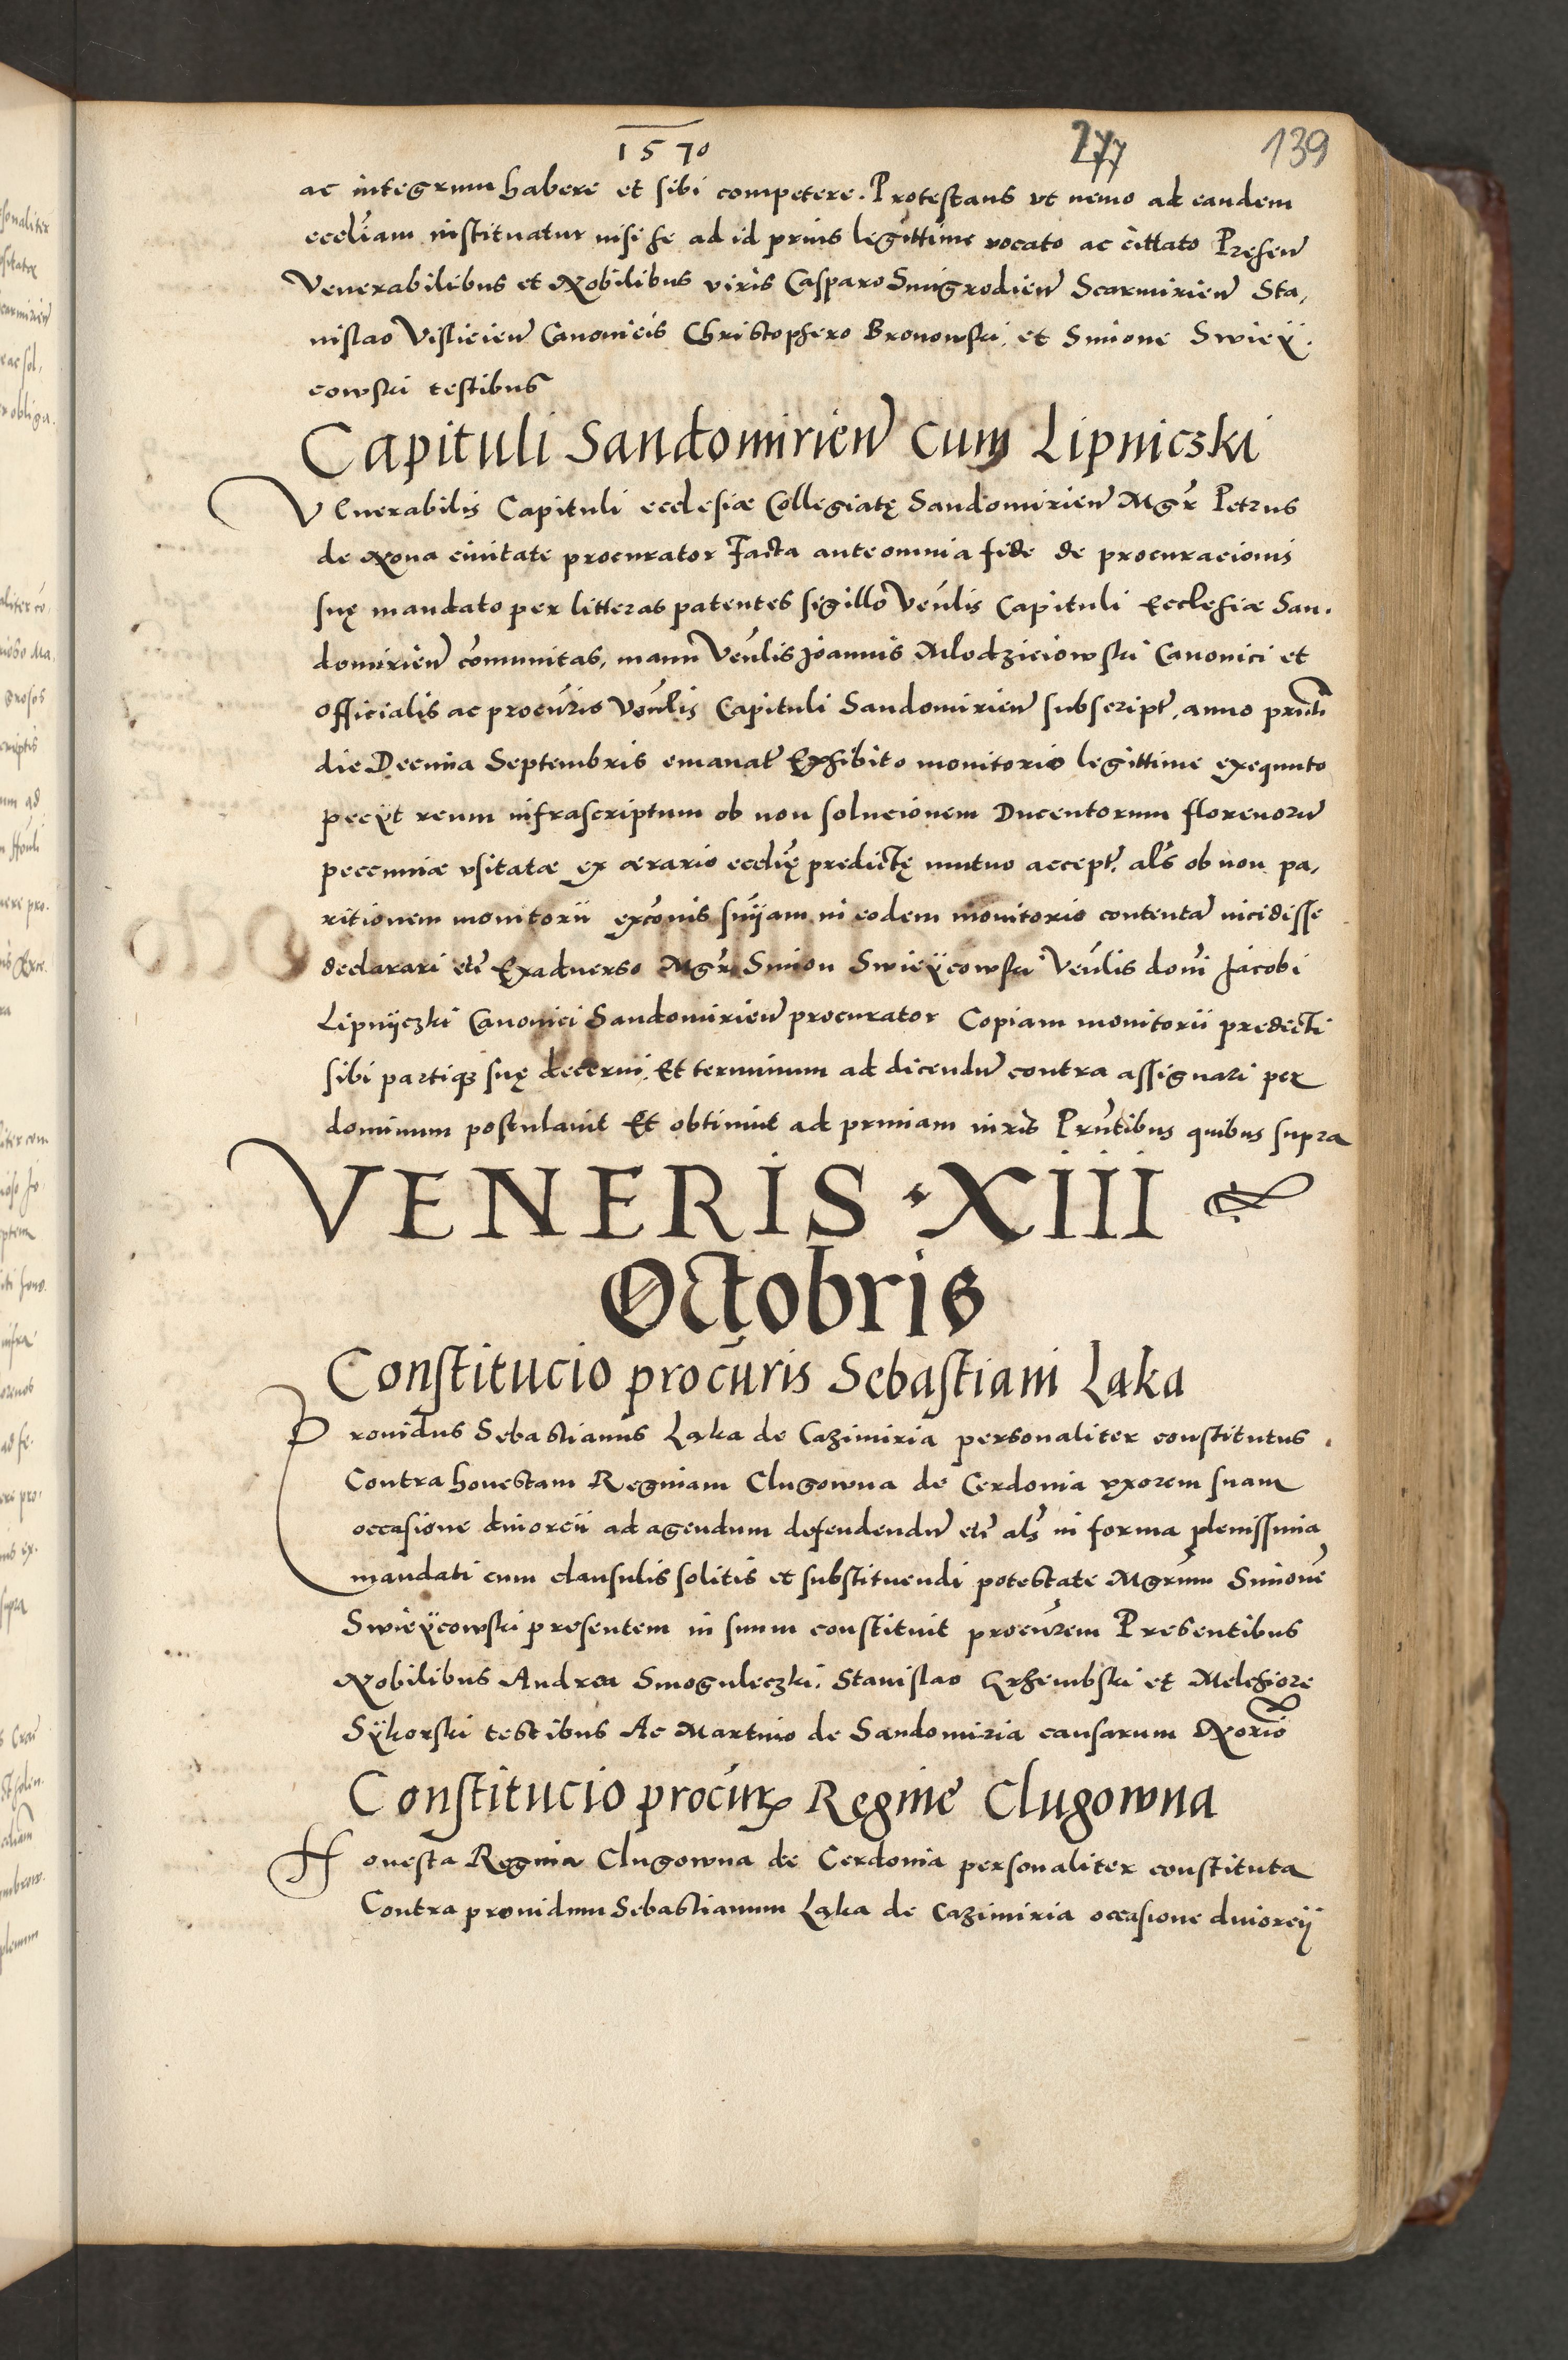 1570
277
139
ac integrum habere et sibi competere. Protestans vt nemo ad eandem
eccl̃iam instituatur nisi se ad id prius legittime vocato ac cittato Presen̄
Venerabilibus et Nobilibus viris Casparo Smigrodien̄ Scarmirien̄ Sta,
nislao Vislicien̄ Canonicis Christophero Bronowski. et Simone Swieÿ.
cowski testibus
Capituli Sandomirien̄ cum Lipniczki
Venerabilis Capituli ecclesiæ Collegiatę Sandomirien̄ Mgr̄ Petrus
de Noua ciuitate procurator Facta ante omnia fide de procuracionis
suę mandato per litteras patentes sigillo Ven̄lis Capituli Ecclesiæ San.
domirien̄ com̄unitas, manu Ven̄lis Joannis Mlodzieiowski Canonici et
Officialis ac procur̄io Ven̄lis Capituli Sandomirien̄ subscript̄. anno prn̄ti
die Decima Septembris emanat̄ Exhibito monitorio legittime exequuto
pecÿt reum infrascriptum ob non solucionem Ducentorum florenorū
pecuniæ vsitatæ ex ærario eccl̄ię predictę mutuo accept̄. al̄s ob non pa,
ritionem monitorii exco̅nis sn̄ijam in eodem monitorio contentā incidisse
declarari et̄ Exaduerso Mgr̄ Simon Swieÿcowski Ven̄lis don̄i Jacobi
Lipnijczki Canonici Sandomirien̄ procurator Copiam monitorii predicti
sibi partiqꝫ suę decerni. Et terminum ad dicendū contra assignari per
dominum postulauit Et obtinuit ad primam iuris Prn̄tibus quibus supra
VENERIS XIII
Octobris
Constitucio procur̄is Sebastiani Laka
Prouidus SebastianusLąka de Cazimiria personaliter constitutus
Contra honestam Reginam Clugowna de Cerdonia vxorem suam
occasione diuorcii ad agendum defendendū et̄ al̄s in forma plenissima
mandati cum clausulis solitis et substituendi potestate Mgrū̄m Simonē
Swieÿcowski presentem in suum constituit procur̄em Presentibus
Nobilibus Andrea Smoguleczki. Stanislao Grhembski et Melchiore
Sÿkorski testibus Ac Martino de Sandomiria causarum Norio̅
Constitucio procur̄ Regine Clugowna
Honesta Regina Clugowna de Cerdonia personaliter constituta
Contra prouidum Sebastianum Ląka de Cazimiria occasione diuorcij